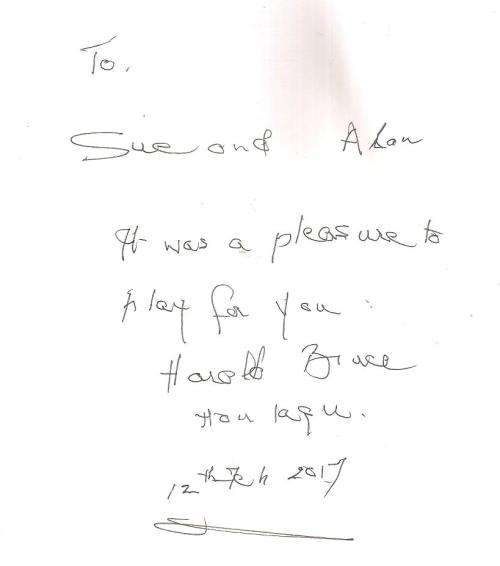 To.
Sue and Alan
It was a pleasure to
play for you.
Harold Bruce
12th Feb 2017